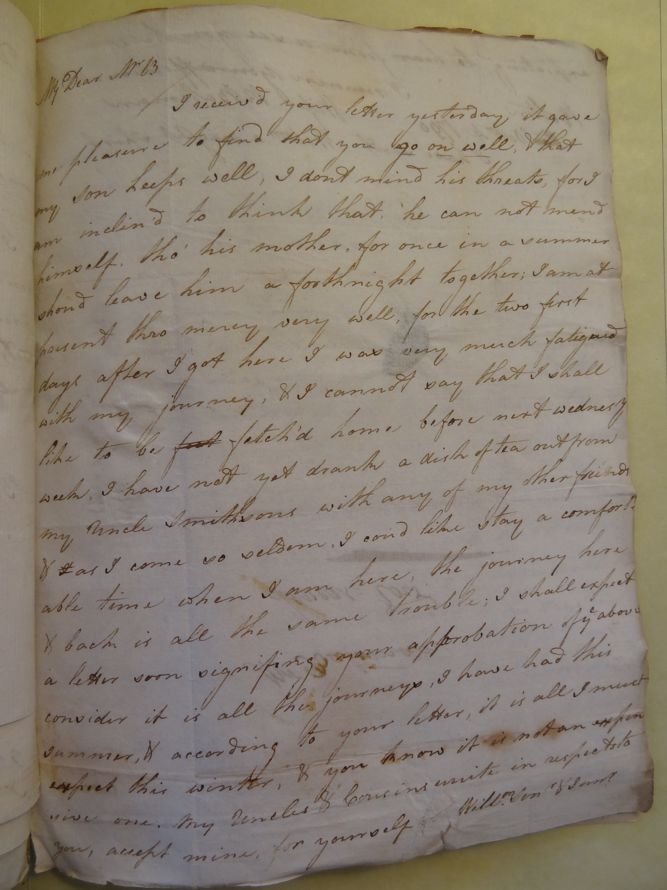 My Dear Mr B
I receiv'd your letter yesterday it gave
me pleasure to find that you go on well, & that
my son keeps well, I dont mind his threats, for I
am inclin'd to think that he can not mend
himself. tho' his mother, for once in a summer
shoud leave him a forthnight together; I am at
present thro mercy very well, for the two first
days after I got here I was very much fatigued
with my journey, & I cannot say that I shall
like to be fetch'd home before next wednesy
week, I have not yet drank a dish of tea out from
my Uncle Smithsons with any of my other friends
& as I come so seldem, I coud like stay a comfort
able time when I am here, the journey here
& back is all the same trouble; I shall expect
a letter soon signifing your approbation of ye above
consider it is all the journeys, I have had this
summer, & according to your letter, it is all I must
expect this winter, & you know it is not an expen
sive one. My Uncles & Cousins unite in respects to
you, accept mine, for yourself